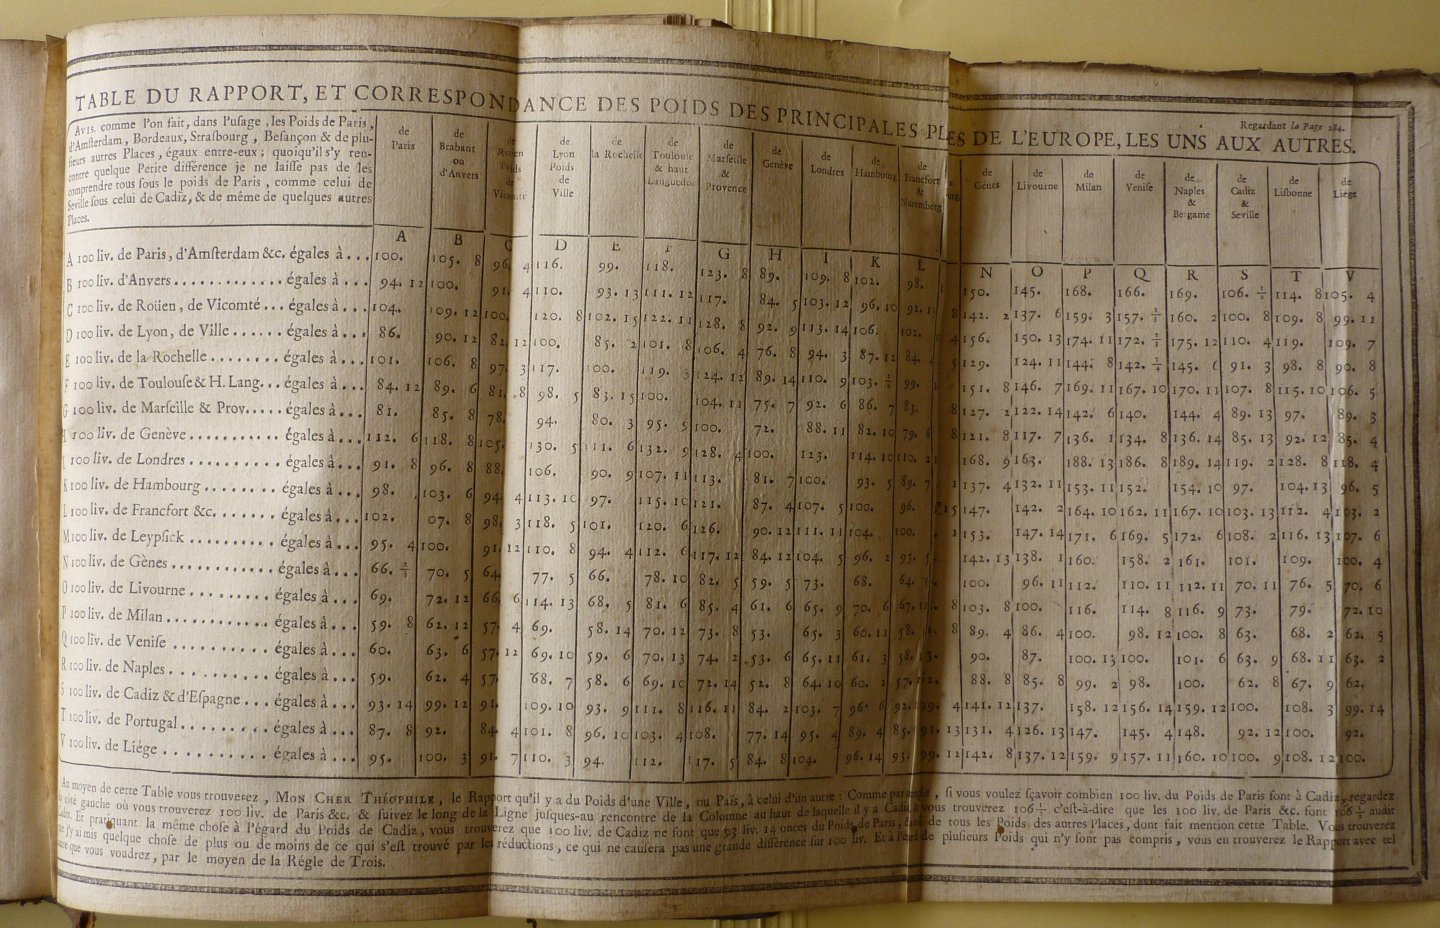 TABLE DU RAPPORT, ET CORRESPONDANCE DES POIDS DES PRINCIPALES PLES DE L'EUROPE, LES UNS AUX AUTRES.
Regardant la Page 284.
AVIS. comme l'on fait, dans l'usage, les Poids de Paris,
d'Amsterdam, Bordeaux, Strasbourg, Besançon & de plu-
sieurs autres Places, égaux entre-eux; quoiqu'il s'y ren-
contre quelque Petite différence je ne laisse pas de les
comprendre tous sous le poids de Paris, comme celui de
Seville sous celui de Cadiz, & de même de quelques autres
Places.
de Paris
de Brabant ou d'Anvers
de Rouen Poids de Vicomté
de Lyon Poids de Ville
de la Rochelle
de Toulouse & haut Languedoc
de Marseille & Provence
de Genêve
de Londres
de Hambourg
de Francfort & Nuremberg
de Gênes
de Livourne
de Milan
de Venise
de Naples & Bergame
de Cadiz & Seville
de Lisbonne
de Liége
A B C D E F G H I K L N O P Q R S T V
A 100 liv. de Paris, d'Amsterdam &c. égales à... 100. 105. 8 96. 4 116. 99. 118. 123. 8 89. 109. 8 102. 98. 150. 145. 168. 166. 169. 106. 1/2 114. 8 105. 4
B 100 liv. d'Anvers............égales à... 94. 12 100. 91. 4 110. 93. 13 111. 12 117. 84. 5 103. 12 96. 10 92. 142. 2 137. 6 159. 3 157. 1/2 160. 2 100. 8 109. 8 99. 11
C 100 liv. de Roüen, de Vicomté... égales à... 104. 109. 12 100. 120. 8 102. 15 122. 11 128. 8 92. 9 113. 14 106. 102. 156. 150. 13 174. 11 172. 1/2 175. 12 110. 4 119. 109. 7
D 100 liv. de Lyon, de Ville...... égales à... 86. 90. 12 82. 12 100. 85. 2 101. 8 106. 4 76. 8 94. 3 87. 12 84. 129. 124. 11 144. 8 142. 1/2 145. 6 91. 3 98. 8 90. 8
E 100 liv. de la Rochelle........ égales à... 101. 106. 8 97. 3 117. 100. 119. 3 124. 12 89. 14 110. 9 103. 1/2 99. 151. 8 146. 7 169. 11 167. 10 170. 11 107. 8 115. 10 106. 5
F 100 liv. de Toulouse & H. Lang... égales à... 84. 12 89. 6 81. 8 98. 5 83. 15 100. 104. 11 75. 7 92. 6 86. 7 83. 127. 2 122. 14 142. 6 140. 144. 4 89. 13 97. 89. 3
G 100 liv. de Marseille & Prov..... égales à... 81. 85. 8 78. 94. 80. 3 95. 5 100. 72. 88. 11 82. 10 79. 6 121. 8 117. 7 136. 1 134. 8 136. 14 85. 13 92. 12 85. 4
H 100 liv. de Genêve........... égales à... 112. 6 118. 8 105. 130. 5 111. 6 132. 9 128. 4 100. 123. 114. 10 110. 168. 9 163. 188. 13 186. 8 189. 14 119. 2 128. 8 118. 4
I 100 liv. de Londres.......... égales à... 91. 8 96. 8 88. 106. 90. 9 107. 11 113. 81. 7 100. 93. 5 89. 7 137. 4 132. 11 153. 11 152. 154. 10 97. 104. 13 96. 5
K 100 liv. de Hambourg........ égales à... 98. 103. 6 94. 4 113. 10 97. 115. 10 121. 87. 4 107. 5 100. 96. 147. 142. 2 164. 10 162. 11 167. 10 103. 13 112. 4 103. 2
L 100 liv. de Francfort &c....... égales à... 102. 07. 8 98. 3 118. 5 101. 120. 6 126. 90. 12 111. 11 104. 100. 153. 147. 14 171. 6 169. 5 172. 6 108. 2 116. 13 107. 6
M 100 liv. de Leypsick.......... égales à... 95. 4 100. 91. 12 110. 8 94. 4 112. 6 117. 12 84. 12 104. 5 96. 2 93. 5 142. 13 138. 1 160. 158. 2 161. 101. 109. 100. 4
N 100 liv. de Gènes............ égales à... 66. 2/3 70. 5 64. 77. 5 66. 78. 10 82. 5 59. 5 73. 68. 64. 100. 96. 11 112. 110. 11 112. 11 70. 11 76. 5 70. 6
O 100 liv. de Livourne......... égales à... 69. 72. 12 66. 6 114. 13 68. 5 81. 6 85. 4 61. 6 65. 9 70. 6 67. 103. 8 100. 116. 114. 8 116. 9 73. 79. 72. 10
P 100 liv. de Milan............ égales à... 59. 8 62. 12 57. 4 69. 58. 14 70. 12 73. 8 53. 65. 3 60. 11 58. 89. 4 86. 4 100. 98. 12 100. 8 63. 68. 2 62. 5
Q 100 liv. de Venise ........... égales à... 60. 63. 6 57. 12 69. 10 59. 6 70. 13 74. 2 53. 6 65. 11 61. 3 58. 90. 87. 100. 13 100. 101. 6 63. 9 68. 11 63. 2
R 100 liv. de Naples........... égales à... 59. 62. 4 57. 68. 7 58. 6 69. 10 72. 14 52. 8 64. 10 60. 2 57. 88. 8 85. 8 99. 2 98. 100. 62. 8 67. 9 62.
S 100 liv. de Cadiz & d'Espagne... égales à... 93. 14 99. 12 91. 109. 10 93. 9 111. 8 116. 11 84. 2 103. 7 96. 6 92. 141. 12 137. 158. 12 156. 14 159. 12 100. 108. 3 99. 14
T 100 liv. de Portugal.......... égales à... 87. 8 92. 84. 4 101. 8 96. 10 103. 4 108. 77. 14 95. 4 89. 4 85. 131. 4 126. 13 147. 145. 4 148. 92. 12 100. 92.
V 100 liv. de Liége ........... égales à... 95. 100. 3 91. 7 110. 3 94. 112. 117. 5 84. 8 104. 96. 14 93. 142. 8 137. 12 159. 9 157. 11 160. 10 100. 9 108. 12 100.
Au moyen de cette Table vous trouverez, MON CHER THÉOPHILE, le Rapport qu'il y a du Poids d'une Ville, ou Païs, à celui d'un autre: Comme par exemple, si vous voulez sçavoir combien 100 liv. du Poids de Paris font à Cadiz, regardez
à côté gauche où vous trouverez 100 liv. de Paris &c. & suivez le long de la Ligne jusques-au rencontre de la Colomne au haut de laquelle il y a Cadiz & vous trouverez 106 1/2 c'est-à-dire que les 100 liv. de Paris &c. font 106 1/2 audit
Cadiz. Et pratiquant la même chose à l'égard du Poids de Cadiz, vous trouverez que 100 liv. de Cadiz ne font que 93 liv. 14 onces du Poids de Paris, de tous les Poids des autres Places, dont fait mention cette Table. Vous trouverez
j'y ai mis quelque chose de plus ou de moins de ce qui s'est trouvé par les réductions, ce qui ne causera pas une grande différence sur 100 liv. Et à l'égard de plusieurs Poids qui n'y sont pas compris, vous en trouverez le Rapport avec tel
que vous voudrez, par le moyen de la Régle de Trois.